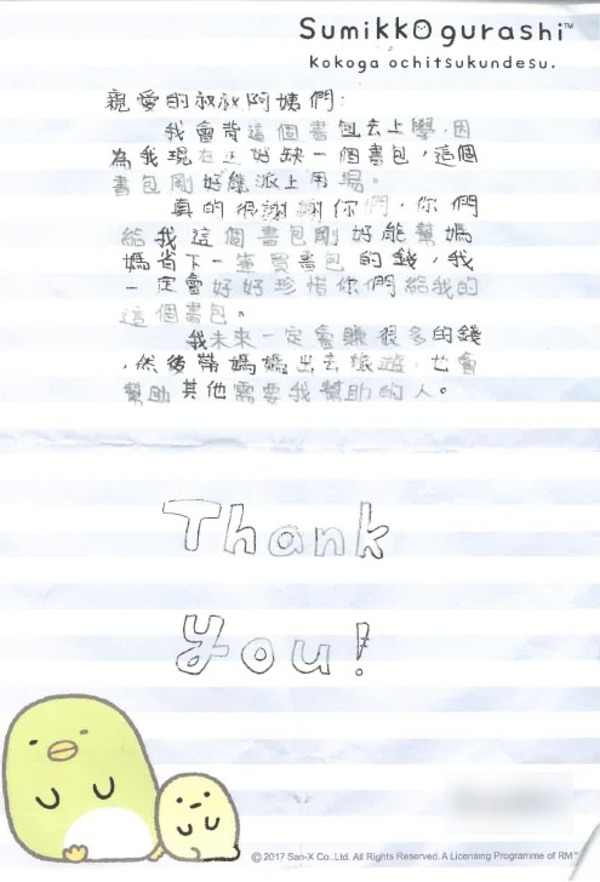 Sumikkogurashi™
Kokoga ochitsukundesu.
親愛的叔叔阿姨們:
我會背這個書包去上學,因
為我現在正好缺一個書包,這個
書包剛好能派上用場。
真的很謝謝你們,你們
給我這個書包剛好能幫媽
媽省下一筆買書包的錢,我
一定會好好珍惜你們給我的
這個書包。
我未來一定會賺很多的錢
,然後帶媽媽出去旅遊,也會
幫助其他需要我幫助的人。
Thank
You!
© 2017 San-X Co.,Ltd. All Rights Reserved. A Licensing Programme of RM™